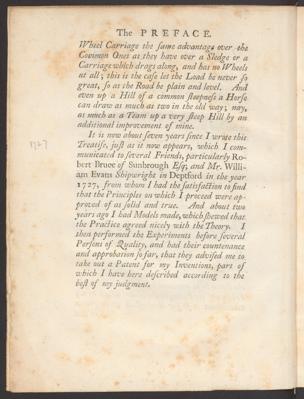 The PREFACE.
Wheel Carriage the same advantage over the
Common Ones as they have over a Sledge or a
Carriage which drags along, and has no Wheels
at all; this is the case let the Load be never so
great, so as the Road be plain and level. And
even up a Hill of a common steepness a Horse
can draw as much as two in the old way; nay,
as much as a Team up a very steep Hill by an
additional improvement of mine.
It is now about seven years since I wrote this
Treatise, just as it now appears, which I com-
municated to several Friends, particularly Ro-
bert Bruce of Sunbrough Esq; and Mr. Willi-
am Evans Shipwright in Deptford in the year
1727, from whom I had the satisfaction to find
that the Principles on which I proceed were ap-
proved of as solid and true. And about two
years ago I had Models made, which shewed that
the Practice agreed nicely with the Theory. I
then performed the Experiments before several
Persons of Quality, and had their countenance
and approbation so far, that they advised me to
take out a Patent for my Inventions, part of
which I have here described according to the
best of my judgment.